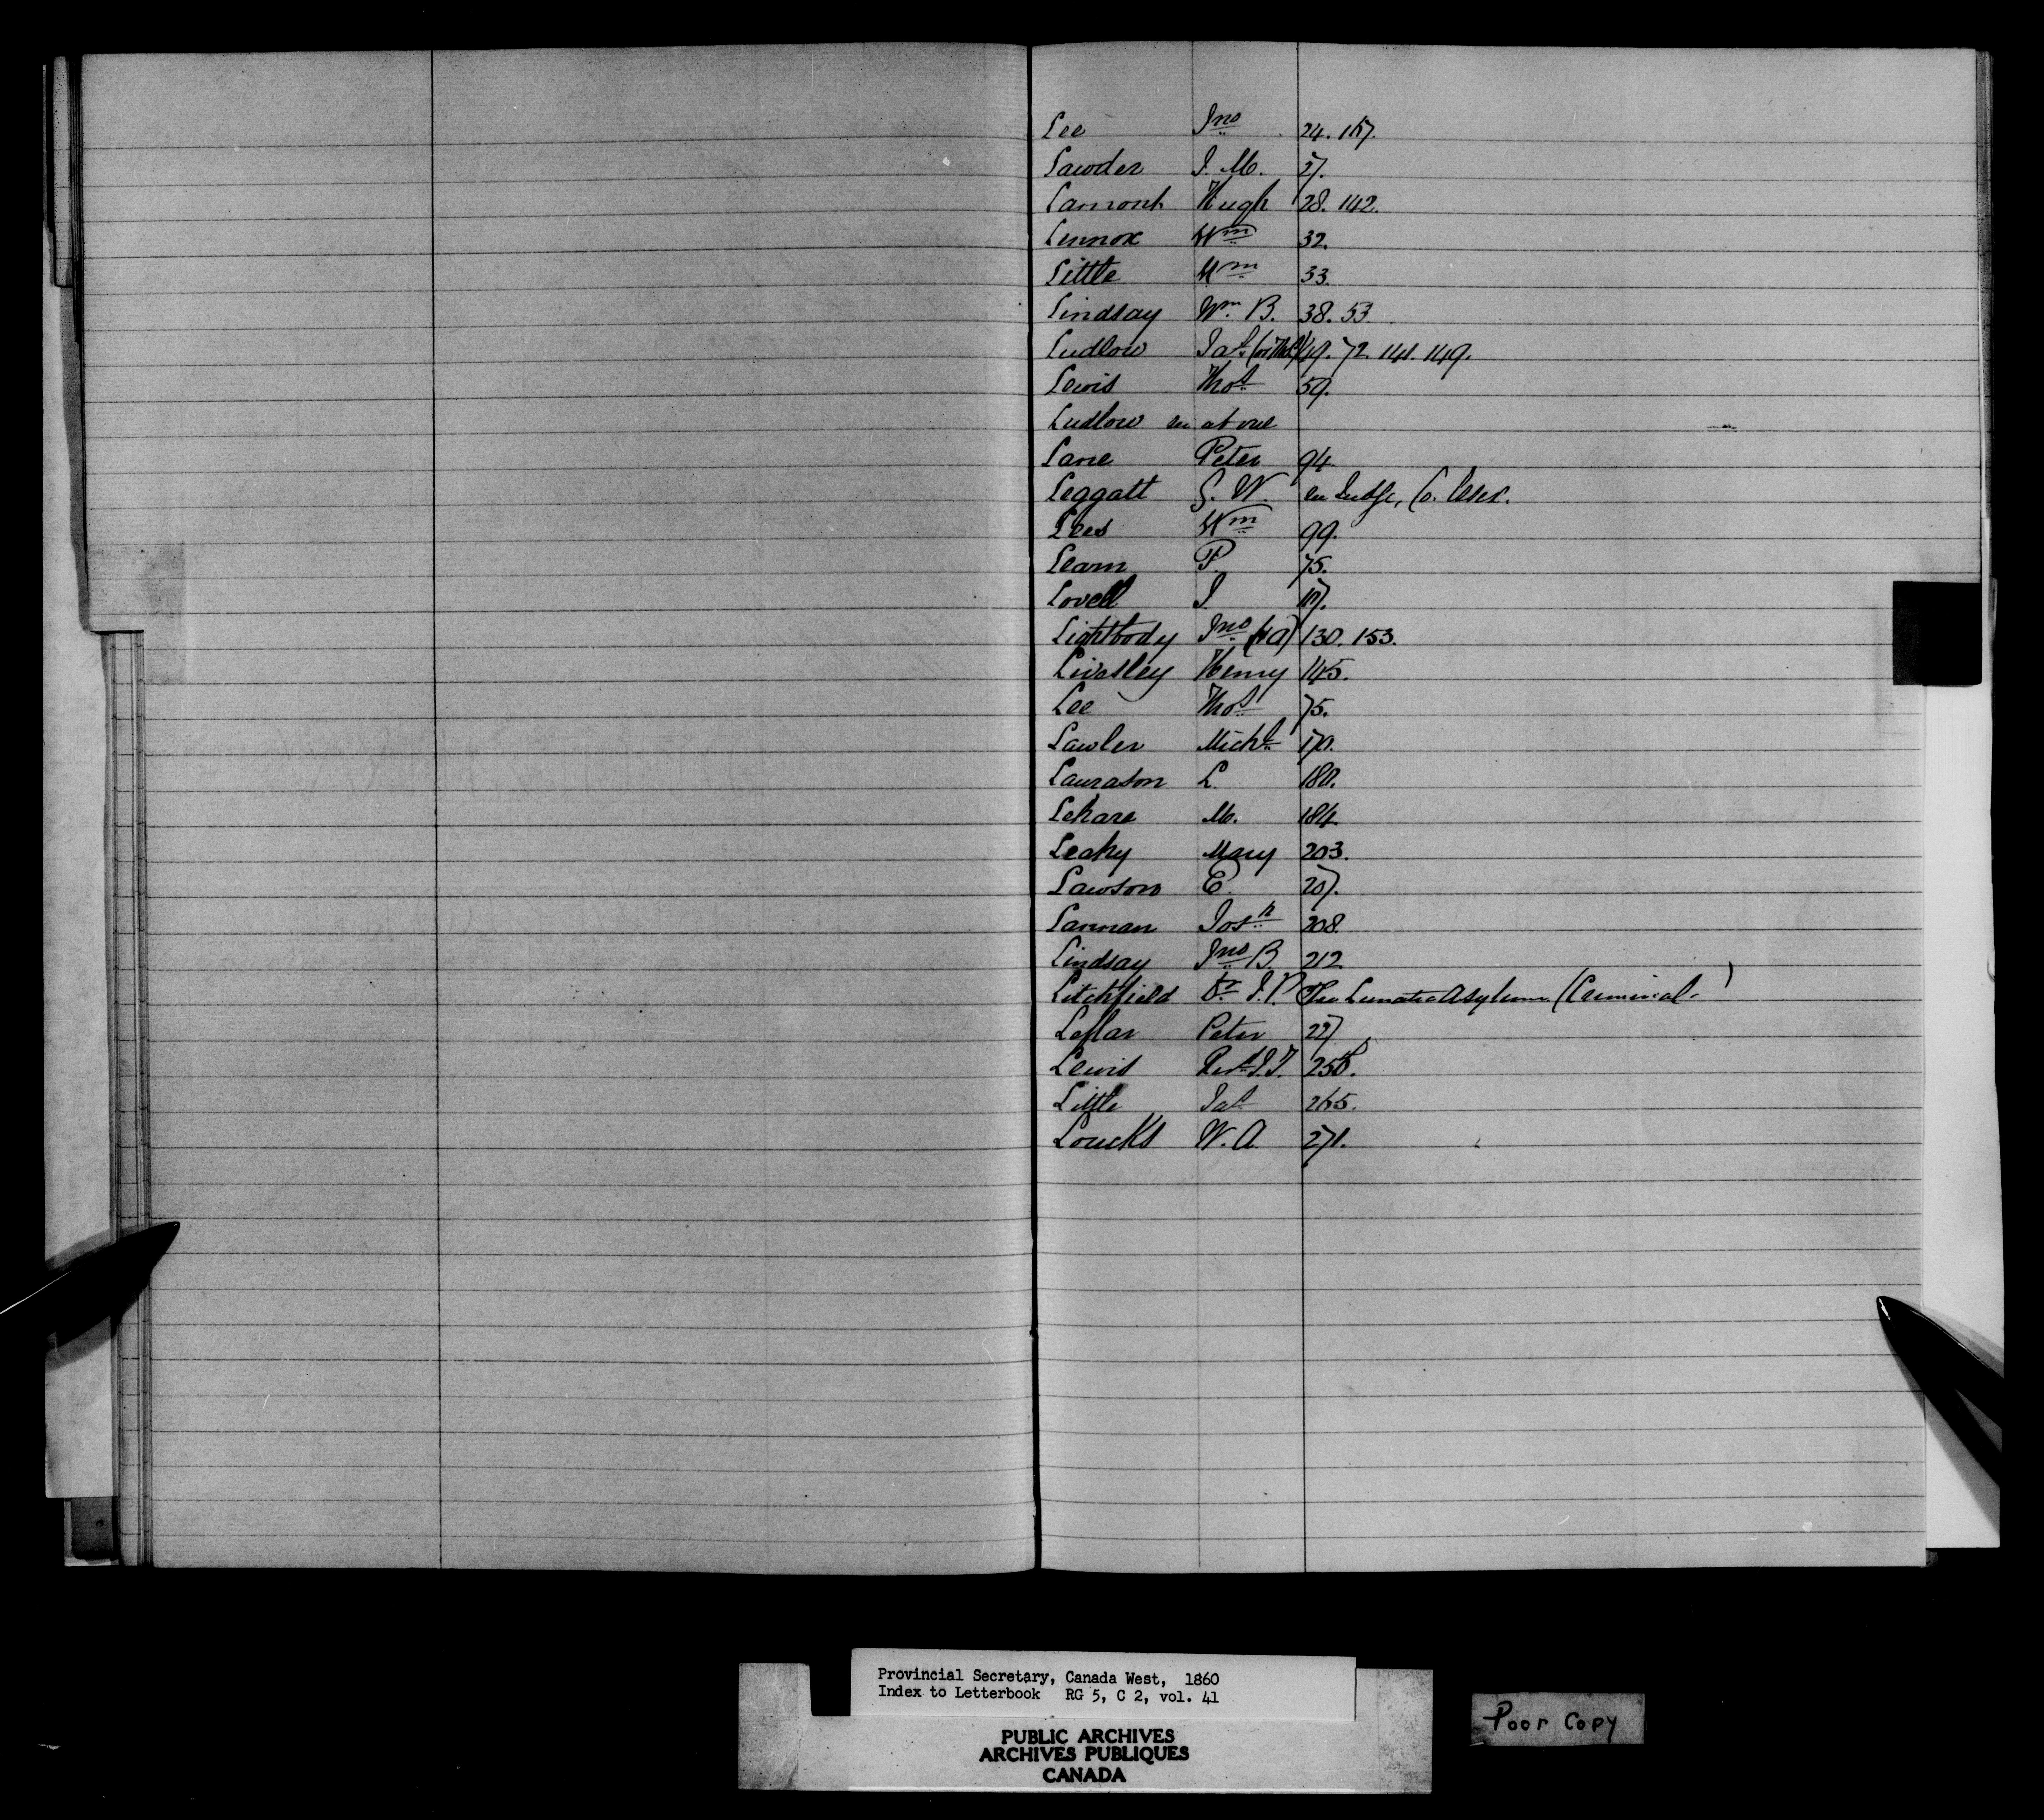 Lee Jno 24. 167.
Lawder J. M. 27.
Lamont Hugh 28. 142.
Lennox Wm 32.
Little Wm 33.
Lindsay Wm B. 38. 53.
Ludlow Jas 49. 72. 141. 149.
Lewis Thos 59.
Ludlow see above
Lane Peter 94
Leggatt G. W. see Judge, Co. Essex.
Lees Wm 99.
Leam P. 75.
Lovell J. 117.
Lightbody Jno 130. 153.
Livasley Henry 145.
Lee Thos 75.
Lawler Michl 170.
Laurason L. 180.
Lehare M. 184.
Leahy Mary 203.
Lawson E. 207.
Lanman Josh 208.
Lindsay Jno B. 212
Litchfield Dr J. P. See Lunatic Asylum (Criminal.)
Leflar Peter 227
Lewis Revd J. T.
Little Jas 265.
Loucks W. A. 271.
Provincial Secretary, Canada West, 1860
Index to Letterbook RG 5, C 2, vol. 41
PUBLIC ARCHIVES
ARCHIVES PUBLIQUES
CANADA
Poor Copy